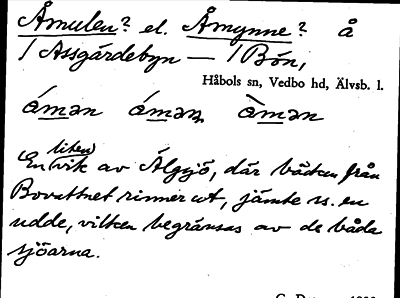 Åmulen? el. Åmynne? å
/ Assgärdebyn — / Bön,
Håbols sn, Vedbo hd, Älvsb. l.
åmən åmən åmən
En liten vik av Älgsjö, där bäcken från
Bovattnet rinner ut, jämte v. en
udde, vilken begränsas av de båda
sjöarna.